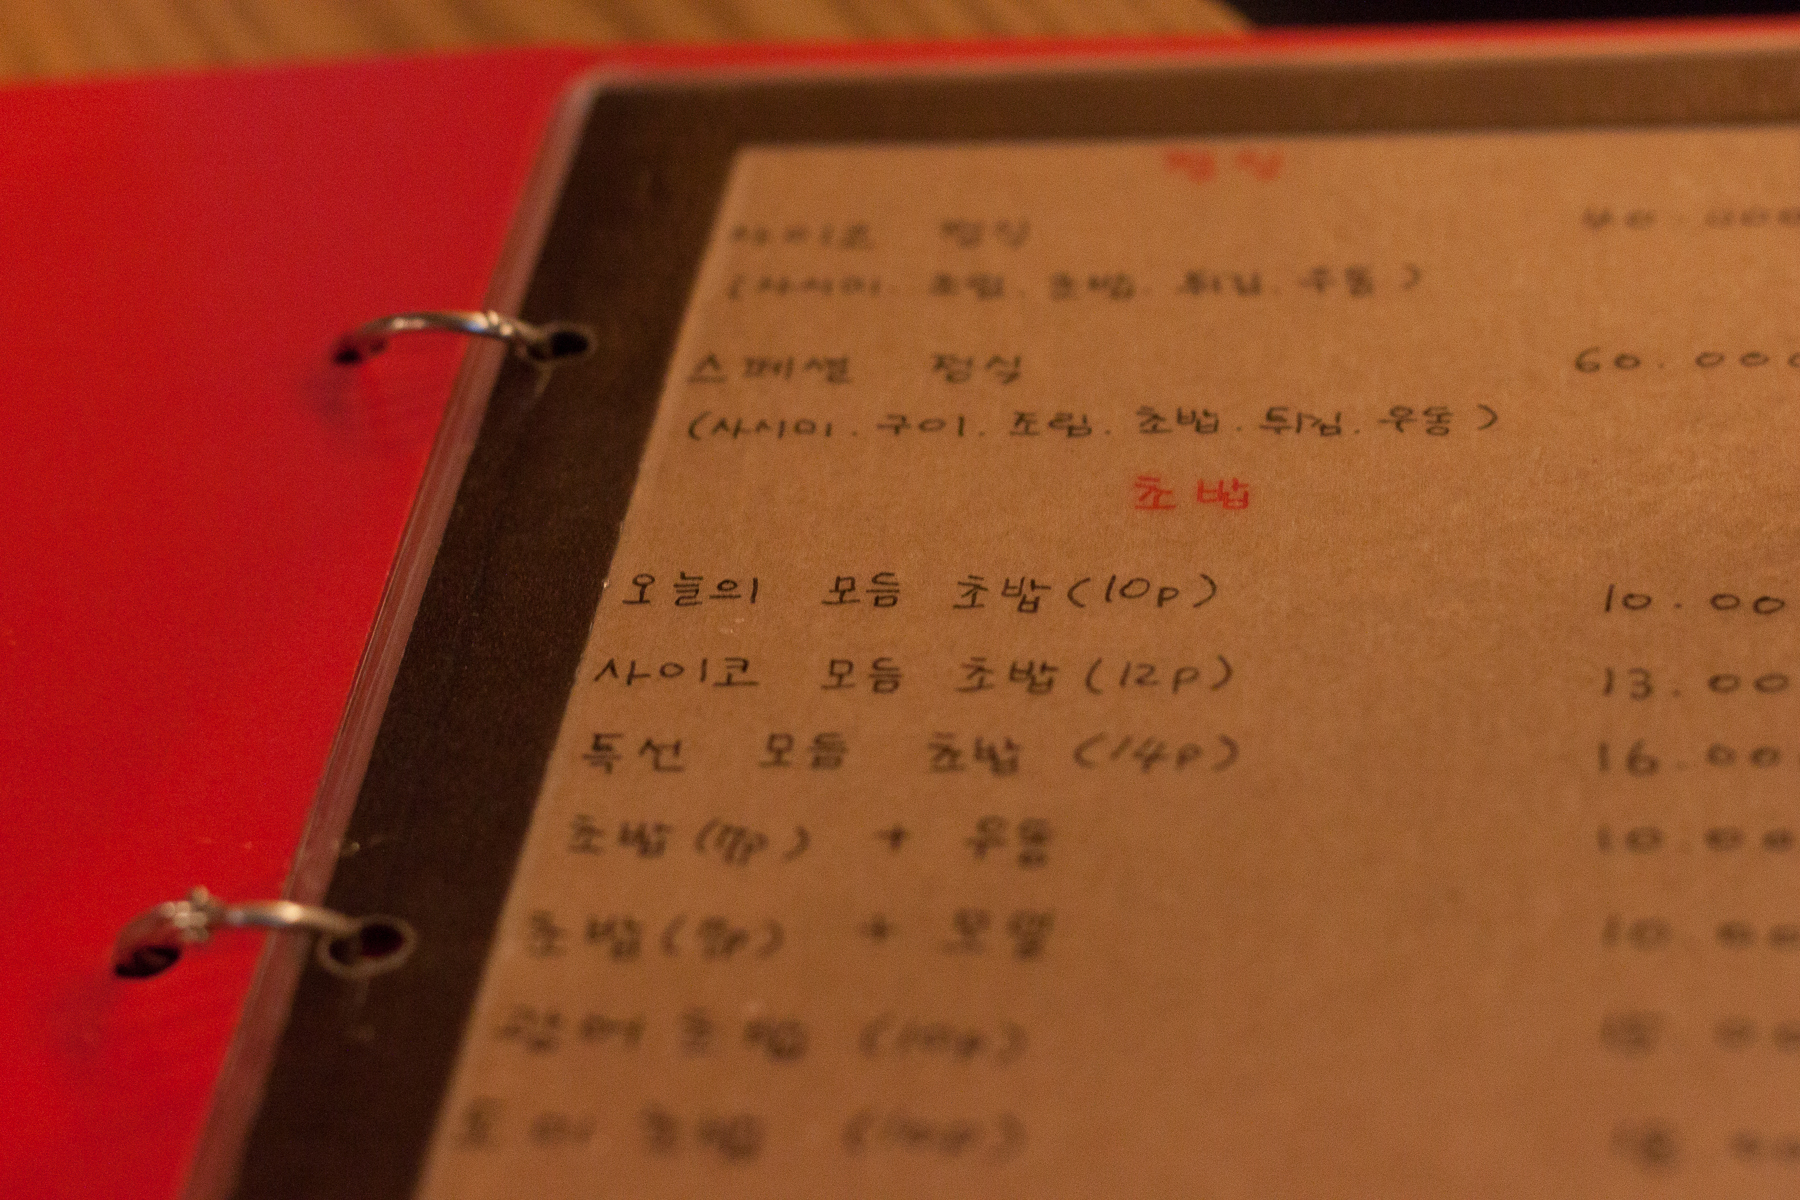 정식
사이코 정식 40.000
(사시미. 조림. 초밥. 튀김. 우동)
스페셜 정식 60.000
(사시미. 구이. 조림. 초밥. 튀김. 우동)
초밥
오늘의 모듬 초밥(10p) 10.00
사이코 모듬 초밥(12p) 13.00
특선 모듬 초밥 (14p) 16.00
초밥(7p) + 우동 10.00
초밥( + 모밀 10.00
초밥 (10p)
초밥